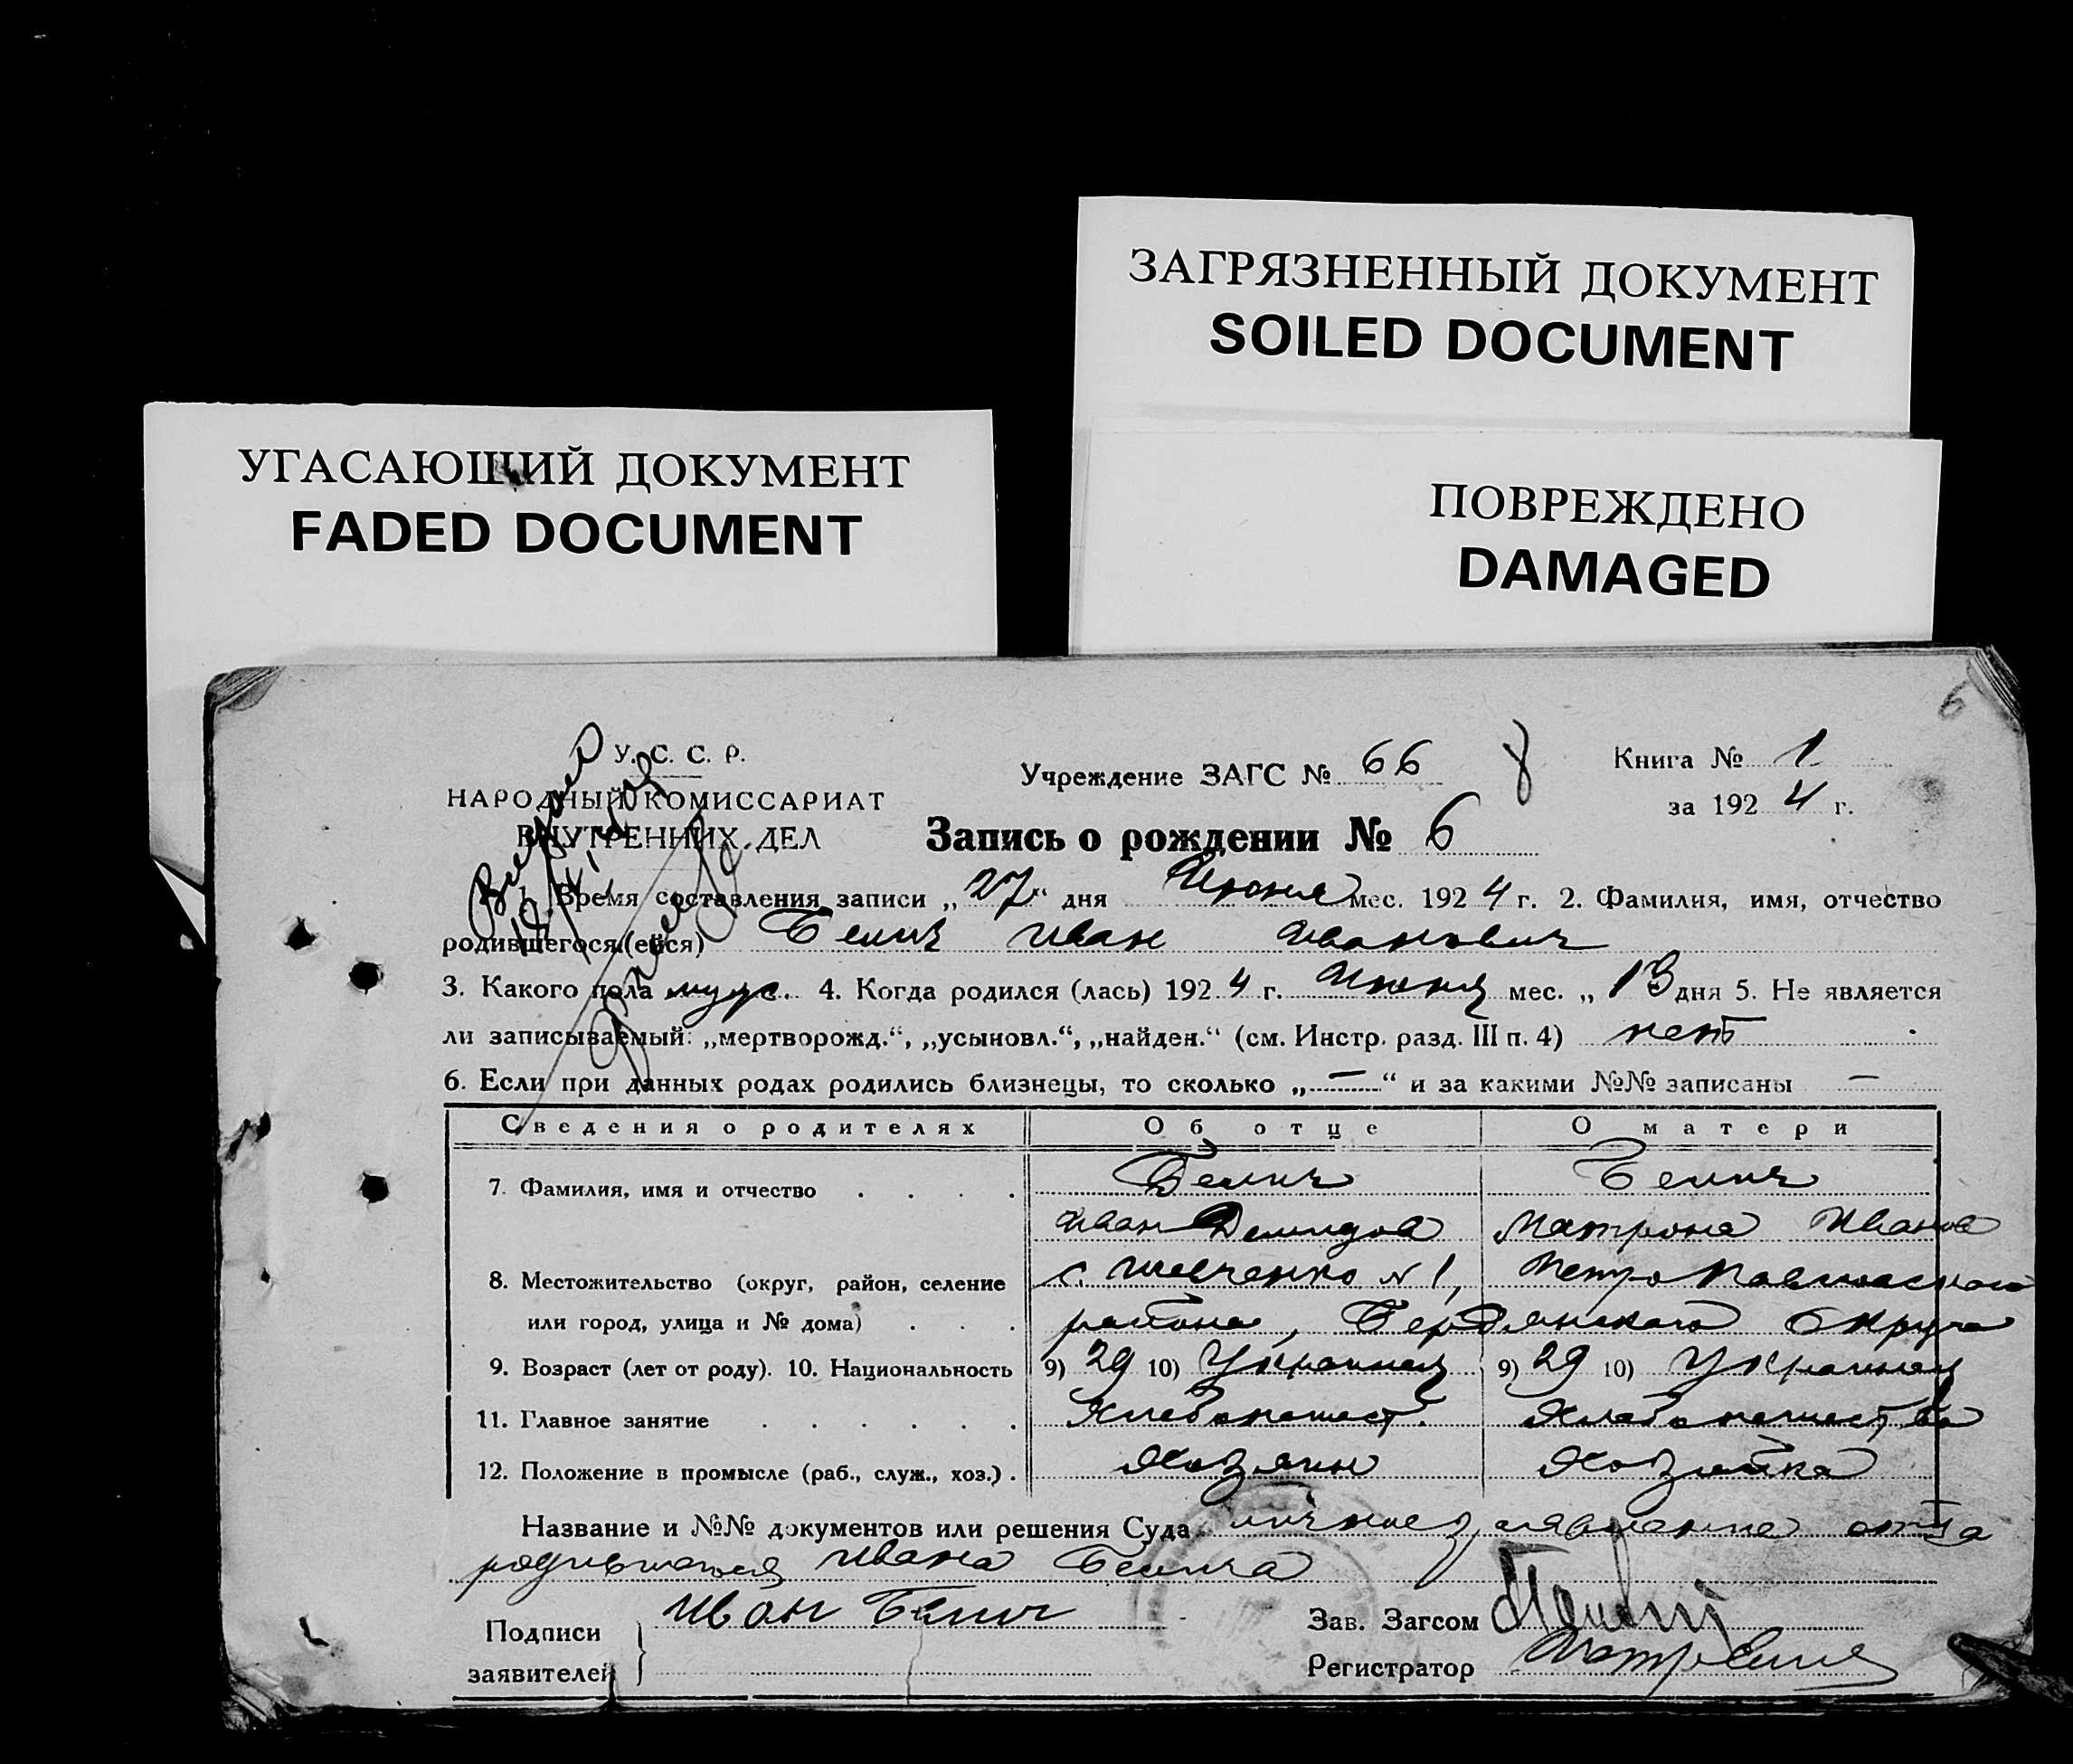 ЗАГРЯЗНЕННЫЙ ДОКУМЕНТ
SOILED DOCUMENT
УГАСАЮЩИЙ ДОКУМЕНТ
FADED DOCUMENT
ПОВРЕЖДЕНО
DAMAGED
6
У. С. С. Р.
НАРОДНЫЙ КОМИССАРИАТ
ВНУТРЕННИХ ДЕЛ
Учреждение ЗАГС № 66 8
Книга № 1
за 192 4 г.
Запись о рождении № 6
1. Время составления записи „27“ дня Июня мес. 192 4 г. 2. Фамилия, имя, отчество
родившегося (ейся) Белич Иван Иванович
3. Какого пола муж. 4. Когда родился (лась) 192 4 г. Июня мес. „13 дня 5. Не является
ли записываемый: „мертворожд.“, „усыновл.“, „найден.“ (см. Инстр. разд. III п. 4) нет
6. Если при данных родах родились близнецы, то сколько „—“ и за какими №№ записаны —
Сведения о родителях Об отце О матери
7. Фамилия, имя и отчество Белич Белич
Иван Демидов Матрона Иванов
8. Местожительство (округ, район, селение с. Шевченко N 1, Петропавловского
или город, улица и № дома) района, Бердянского Округа
9. Возраст (лет от роду). 10. Национальность 9) 29 10) Украинец 9) 29 10) Украинец
11. Главное занятие Хлебопашест. Хлебопашество
12. Положение в промысле (раб., служ., хоз.) Хозяин Хозяйка
Название и №№ документов или решения Суда личное заявление отца
родившагося Ивана Белича
Подписи
заявителей
Иван Белич
Зав. Загсом
Регистратор